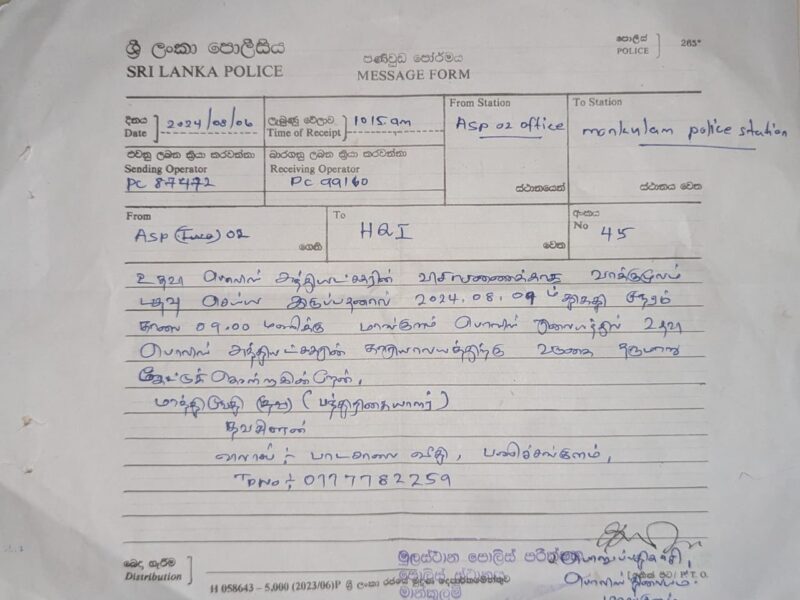 ශ්‍රී ලංකා පොලීසිය
SRI LANKA POLICE
පණිවුඩ පෝර්මය
MESSAGE FORM
පොලිස්
POLICE
265
දිනය
Date
2024/08/06
ලැබුණු වේලාව
Time of Receipt
1015 am
From Station
ASP 02 office
ස්ථානයෙන්
To Station
mankulam police station
ස්ථානය වෙත
එවනු ලබන ක්‍රියා කරවන්නා
Sending Operator
PC 87472
බාරගනු ලබන ක්‍රියා කරවන්නා
Receiving Operator
PC 99160
From
ASP 02
ගෙනි
To
HQI
වෙත
අංකය
No
45
உதவி பொலிஸ் அத்தியட்சகரின் விசாரணைக்காக வாக்குமூலம்
பதிவு செய்ய இருப்பதனால் 2024.08.09 ம் திகதி
காலை 09.00 மணிக்கு மாங்குளம் பொலிஸ் நிலையத்தில் உதவி
பொலிஸ் அத்தியட்சகரின் காரியாலயத்திற்கு வருகை தருமாறு
கேட்டுக் கொள்கின்றேன்.
(பத்திரிகையாளர்)
தவசீலன்
பாடசாலை வீதி,
TP No :- 0777782259
බෙදා හැරීම
Distribution
H 058643 - 5,000 (2023/06) P ශ්‍රී ලංකා රජයේ මුද්‍රණ දෙපාර්තමේන්තුව
මූලස්ථාන පොලිස් පරීක්ෂක
පොලිස් ස්ථානය
මාන්කුලම්
P. T. O.